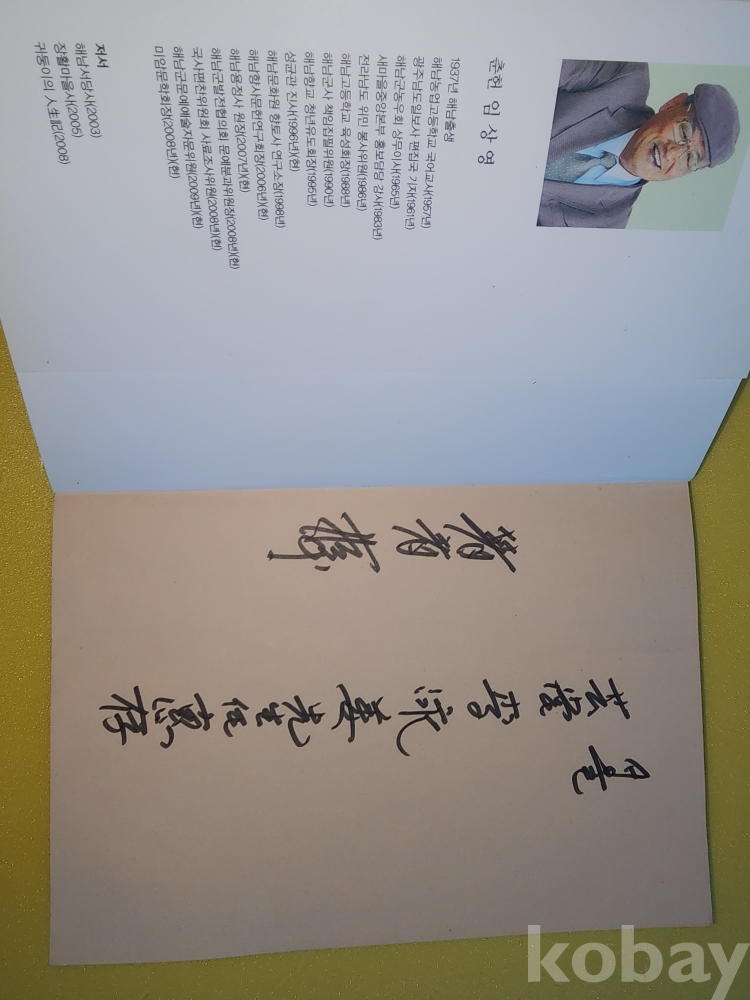 춘헌 임 상 영
1937년 해남출생
해남농업고등학교 국어교사(1957년)
광주남도일보사 편집국 기자(1961년)
해남군농우회 상무이사(1965년)
새마을중앙본부 홍보담당 강사(1983년)
전라남도 위민 봉사위원(1986년)
해남고등학교 육성회장(1988년)
해남군사 책임집필위원(1990년)
해남향교 청년유도회장(1995년)
성균관 진사(1996년)(현)
해남문화원 향토사 연구소장(1998년)
해남향사문헌연구회장(2006년)(현)
해남용정사 원장(2007년)(현)
해남군발전협의회 문예분과위원장(2008년)(현)
국사편찬위원회 사료조사위원(2008년)(현)
해남군문예예술자문위원(2009년)(현)
미암문학회장(2008년)(현)
저서
해남서당사(2003)
장촬마을사(2005)
귀둥이의 人生記(2008)
著者
先生
kobay